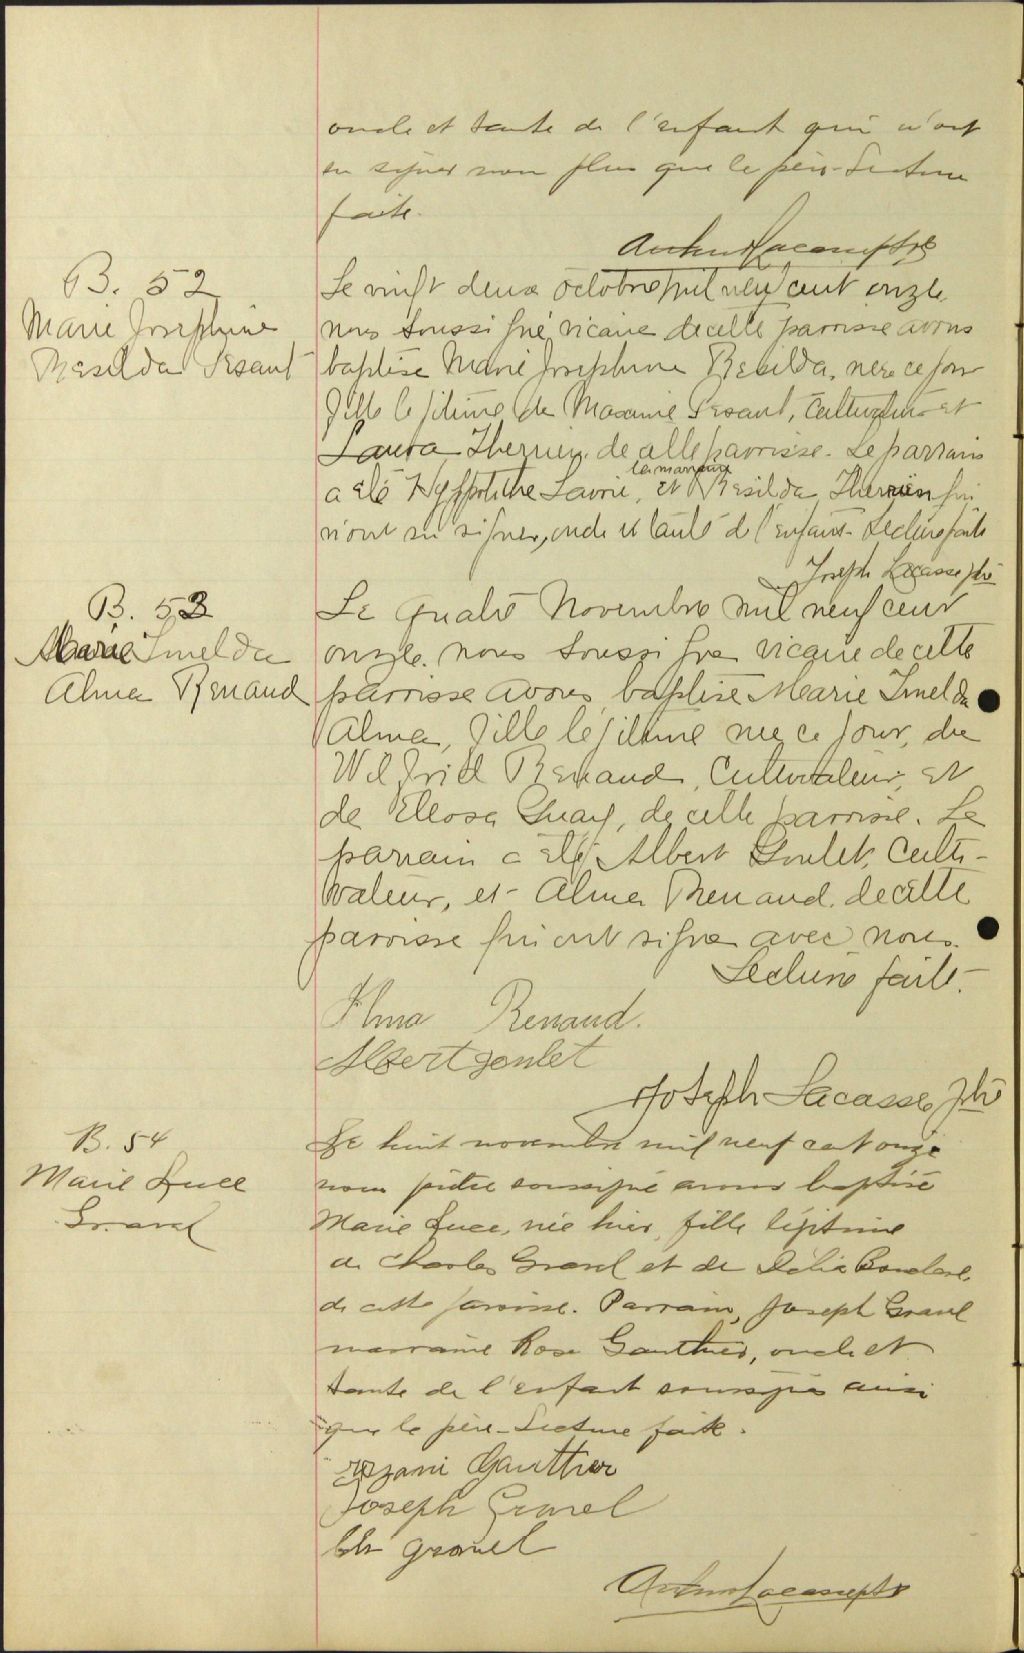 oncle et tante de l'enfant qui n'ont
su signer non plus que le père - Lecture
faite.
Arthur Lacasse ptre
B. 52
Marie Josephine
Resilda Pesant
Le vingt deux octobre mil neuf cent onze,
nous soussigné vicaire de cette paroisse avons
baptisé Marie Josephine Resilda, née ce jour
fille légitime de Maxime Pesant, cultivateur et
Laura Therrien de cette paroisse. Le parrain
la marraine
a été Hyppolithe Lavoie, et Resilda Therrien qui
n'ont su signer, oncle et tante de l'enfant - Lecture faite
Joseph Lacasse ptre
B. 53
Marie Imelda
Alma Renaud
Le quatre Novembre mil neuf cent
onze, nous soussigné vicaire de cette
paroisse avons baptisé Marie Imelda
Alma, fille légitime née ce jour, de
Wilfrid Renaud, Cultivateur, et
de Eleosa Guay, de cette paroisse. Le
parrain a été Albert Goulet, Culti-
vateur, et Alma Renaud de cette
paroisse qui ont signé avec nous.
Lecture faite.
Alma Renaud.
Albert goulet
Joseph Lacasse ptre
B. 54
Marie Luce
Gravel
Le huit novembre mil neuf cent onze
nous prêtre soussigné avons baptisé
Marie Luce, née hier, fille légitime
de Charles Gravel et de Délia
de cette paroisse. Parrain, Joseph Gravel
marraine Rose Gauthier, oncle et
tante de l'enfant soussignés ainsi
que le père - Lecture faite.
Gauthier
Joseph Gravel
Ch gravel
Arthur Lacasse ptre